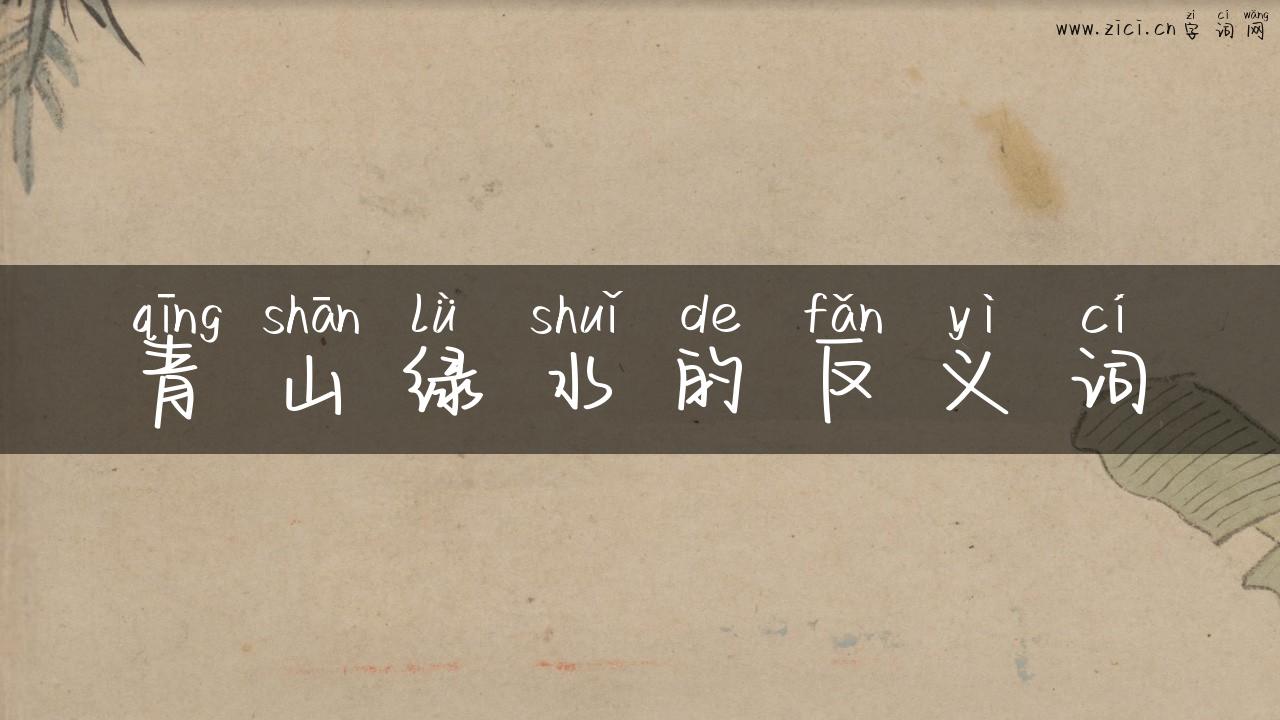 zì cí wǎng
www.zici.cn 字词网
qīng shān lǜ shuǐ de fǎn yì cí
青山绿水的反义词